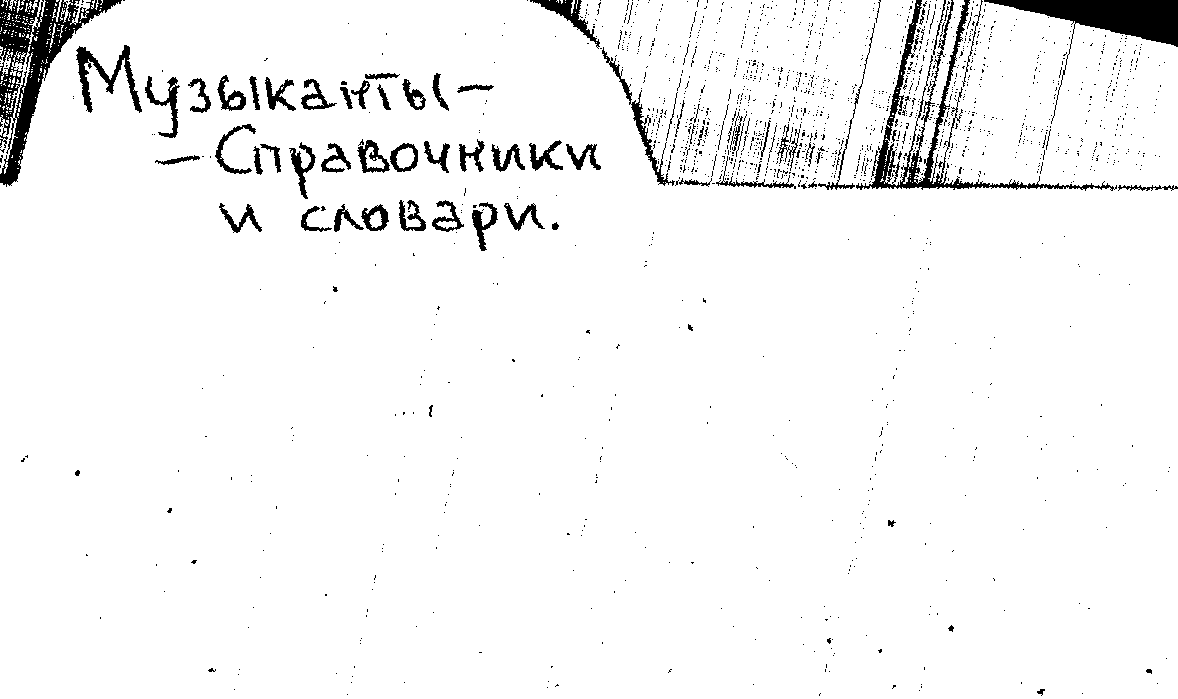 Музыканты –
– Справочники
и словари.